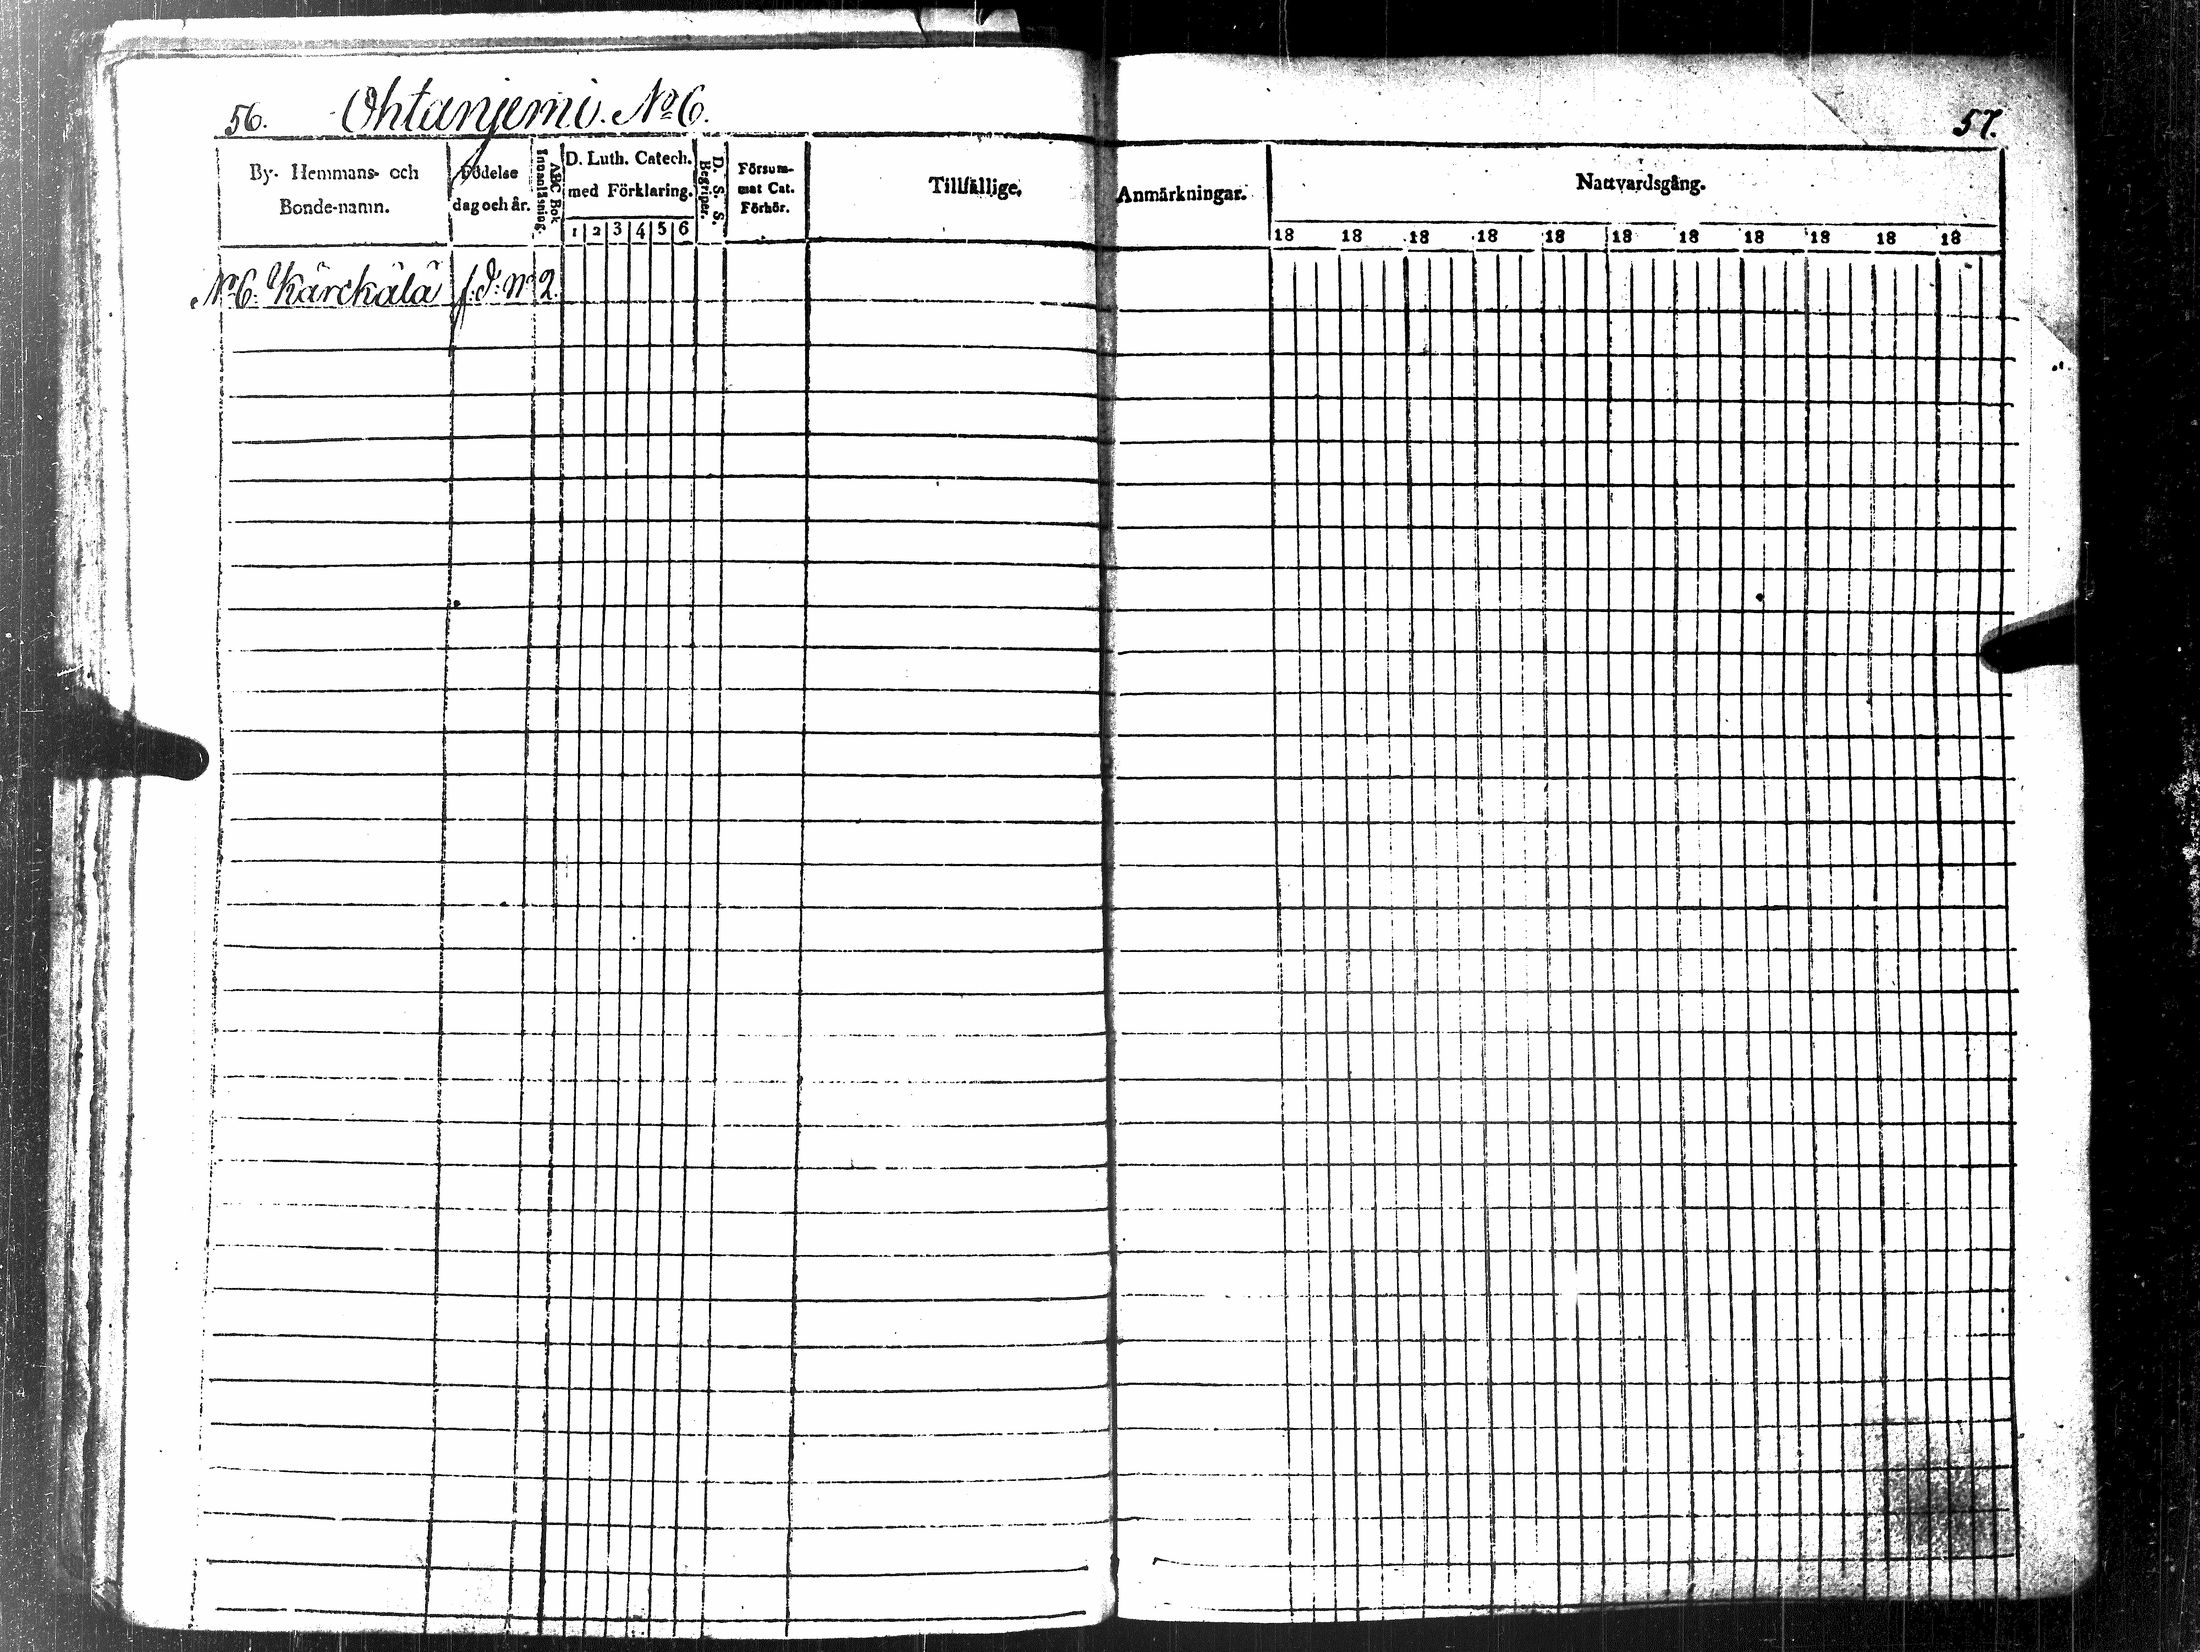 56. Ohtanjemi. No 6.
57.
By- Hemmans- och
Bonde-namn.
Födelse
dag och år.
ABC Bok
Innanläsning.
D. Luth. Catech.
med Förklaring.
1 2 3 4 5 6
D. S. S.
Begriper.
Försum-
mat Cat.
Förhör.
Tillfällige. Anmärkningar.
Nattvardsgång.
18 18 18 18 18 18 18 18 18 18 18
No 6. Kärckälä